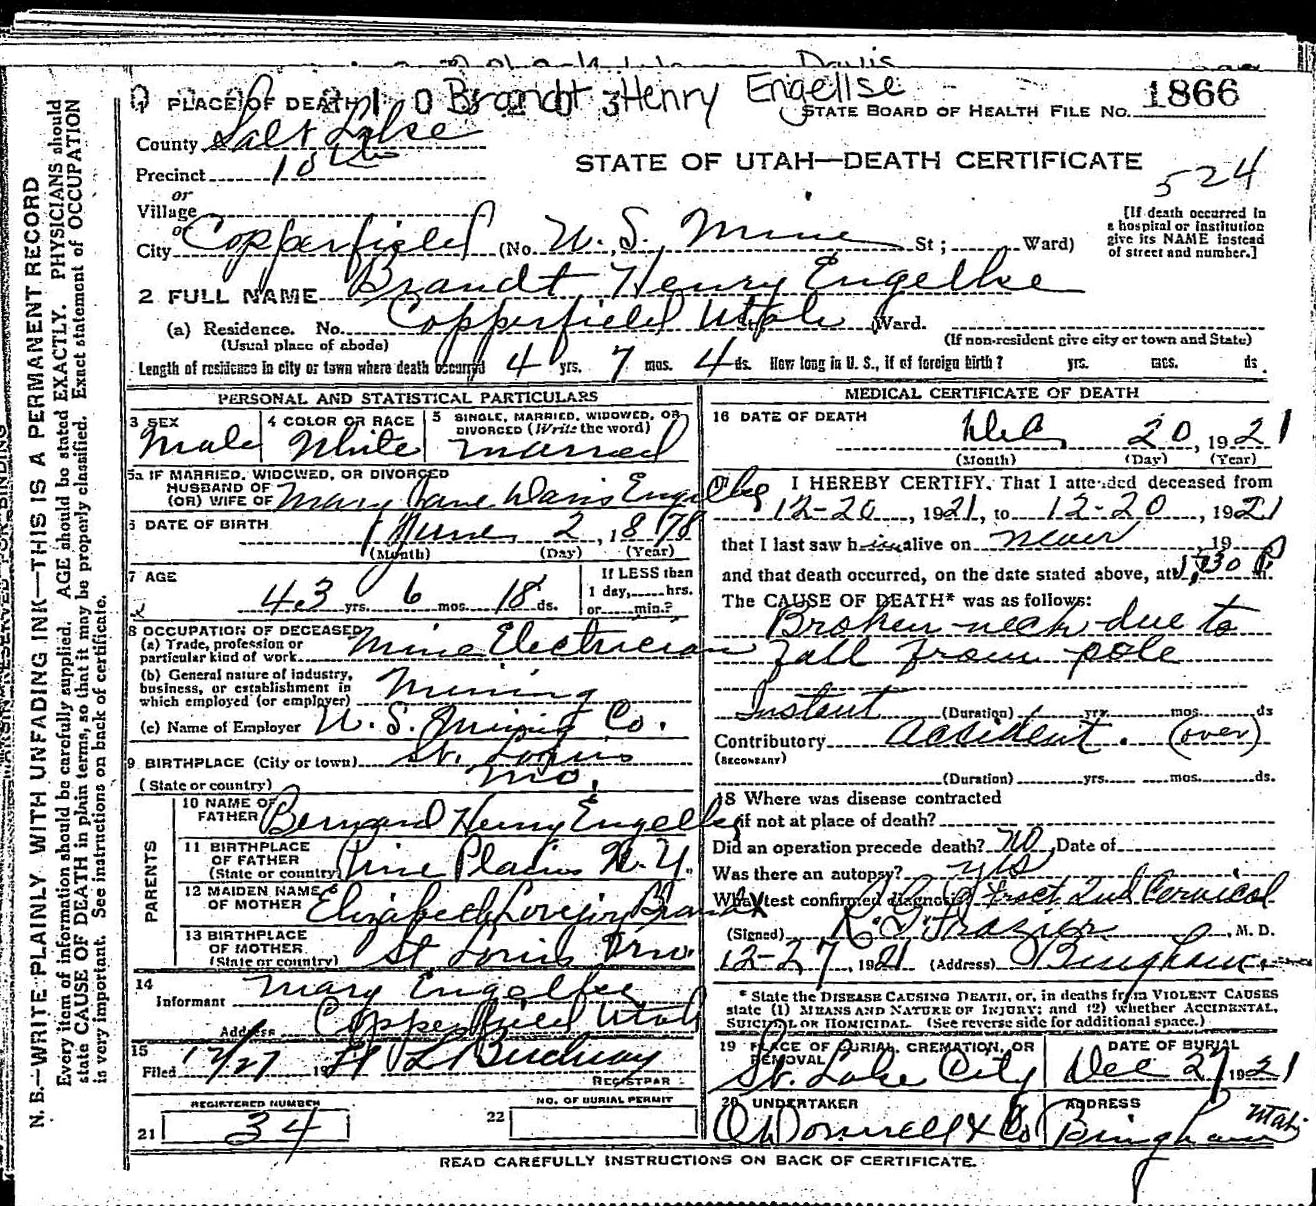 Davis
Brandt Henry Engellse
1 PLACE OF DEATH
STATE BOARD OF HEALTH FILE NO. 1866
County Salt Lake
STATE OF UTAH—DEATH CERTIFICATE
524
Precinct 10th
or
Village
or
City Copperfield (No. U. S. Mine St; Ward)
[If death occurred in a hospital or institution give its NAME instead of street and number.]
2 FULL NAME Brandt Henry Engelke
(a) Residence. No. Copperfield Utah Ward.
(Usual place of abode) (If non-resident give city or town and State)
Length of residence in city or town where death occurred 4 yrs. 7 mos. 4 ds. How long in U. S., if of foreign birth? yrs. mos. ds.
PERSONAL AND STATISTICAL PARTICULARS
3 SEX Male
4 COLOR OR RACE White
5 SINGLE, MARRIED, WIDOWED, OR DIVORCED (Write the word) married
5a IF MARRIED, WIDOWED, OR DIVORCED
HUSBAND OF
(OR) WIFE OF Mary Jane Davis Engelke
6 DATE OF BIRTH June 2, 1878
(Month) (Day) (Year)
7 AGE 43 yrs. 6 mos. 18 ds.
If LESS than 1 day, hrs. or min.?
8 OCCUPATION OF DECEASED
(a) Trade, profession or particular kind of work Mine Electrician
(b) General nature of industry, business, or establishment in which employed (or employer) Mining
(c) Name of Employer U. S. Mining Co.
9 BIRTHPLACE (City or town) St. Louis
(State or country) Mo.
PARENTS
10 NAME OF FATHER Bernard Henry Engelke
11 BIRTHPLACE OF FATHER (State or country) Pine Plains N. Y.
12 MAIDEN NAME OF MOTHER Elizabeth Lovejoy Brandt
13 BIRTHPLACE OF MOTHER (State or country) St Louis Mo.
14 Informant Mary Engelke
Address Copperfield Utah
15 Filed 12/27 1921
REGISTRAR
REGISTERED NUMBER
21 34
22 NO. OF BURIAL PERMIT
MEDICAL CERTIFICATE OF DEATH
16 DATE OF DEATH Dec 20, 1921
(Month) (Day) (Year)
I HEREBY CERTIFY, That I attended deceased from
12-20, 1921, to 12-20, 1921
that I last saw him alive on never 19
and that death occurred, on the date stated above, at 1:30 P. M.
The CAUSE OF DEATH* was as follows:
Broken neck due to
fall from pole
Instant (Duration) yrs. mos. ds
Contributory accident. (over)
(SECONDARY)
(Duration) yrs. mos. ds.
18 Where was disease contracted
if not at place of death?
Did an operation precede death? No Date of
Was there an autopsy? yes
What test confirmed diagnosis? Fract 2nd Cervical
(Signed) R. G. Frazier, M. D.
12-27, 1921 (Address) Bingham
* State the DISEASE CAUSING DEATH, or, in deaths from VIOLENT CAUSES state (1) MEANS AND NATURE OF INJURY; and (2) whether ACCIDENTAL, SUICIDAL OR HOMICIDAL. (See reverse side for additional space.)
19 PLACE OF BURIAL, CREMATION, OR REMOVAL St. Lake City
DATE OF BURIAL Dec 27 1921
20 UNDERTAKER O'Donnell & Co
ADDRESS Bingham Utah
READ CAREFULLY INSTRUCTIONS ON BACK OF CERTIFICATE.
N. B.—WRITE PLAINLY WITH UNFADING INK—THIS IS A PERMANENT RECORD
Every item of information should be carefully supplied. AGE should be stated EXACTLY. PHYSICIANS should
state CAUSE OF DEATH in plain terms, so that it may be properly classified. Exact statement of OCCUPATION
is very important. See instructions on back of certificate.